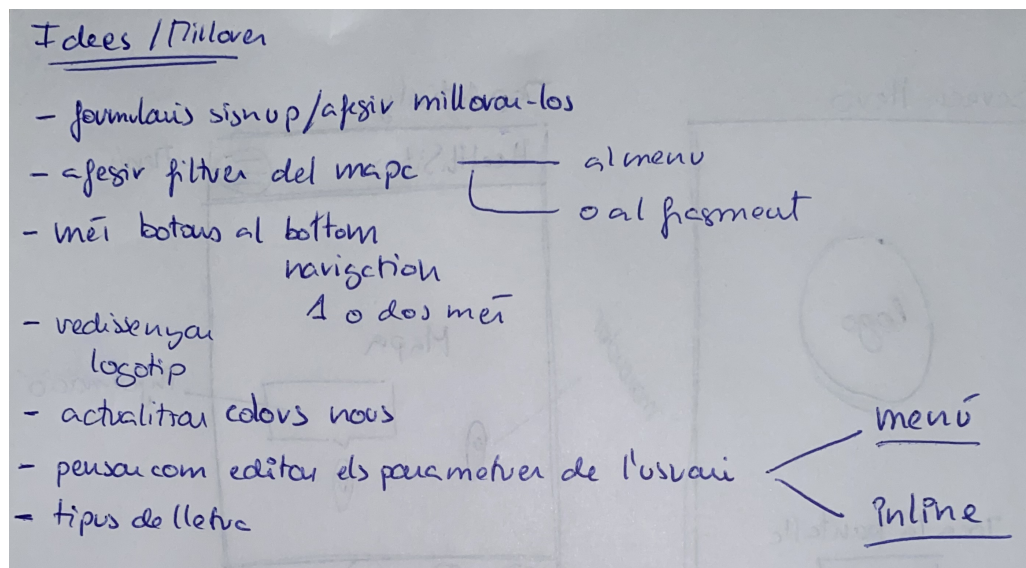 Idees / Millores
- formularis signup/afegir millorar-los
- afegir filtres del mapa
al menu
o al fragment
- més botons al bottom
navigation
1 o dos més
- redissenyar
logotip
- actualitzar colors nous
- pensar com editar els parametres de l'usuari
menú
inline
- tipus de lletra
Mapa
logo